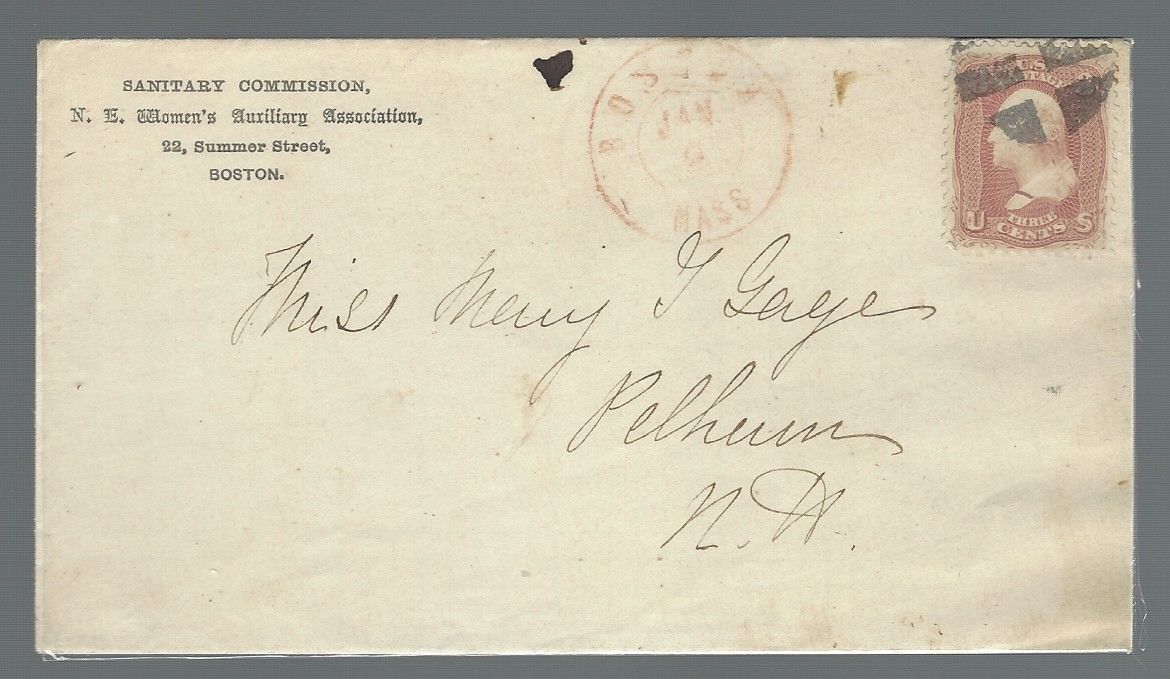 SANITARY COMMISSION,
N. E. Women's Auxiliary Association,
22, Summer Street,
BOSTON.
BOSTON
JAN
U.S. POSTAGE
U THREE CENTS S
Miss Mary J Gage
Pelham
N. H.